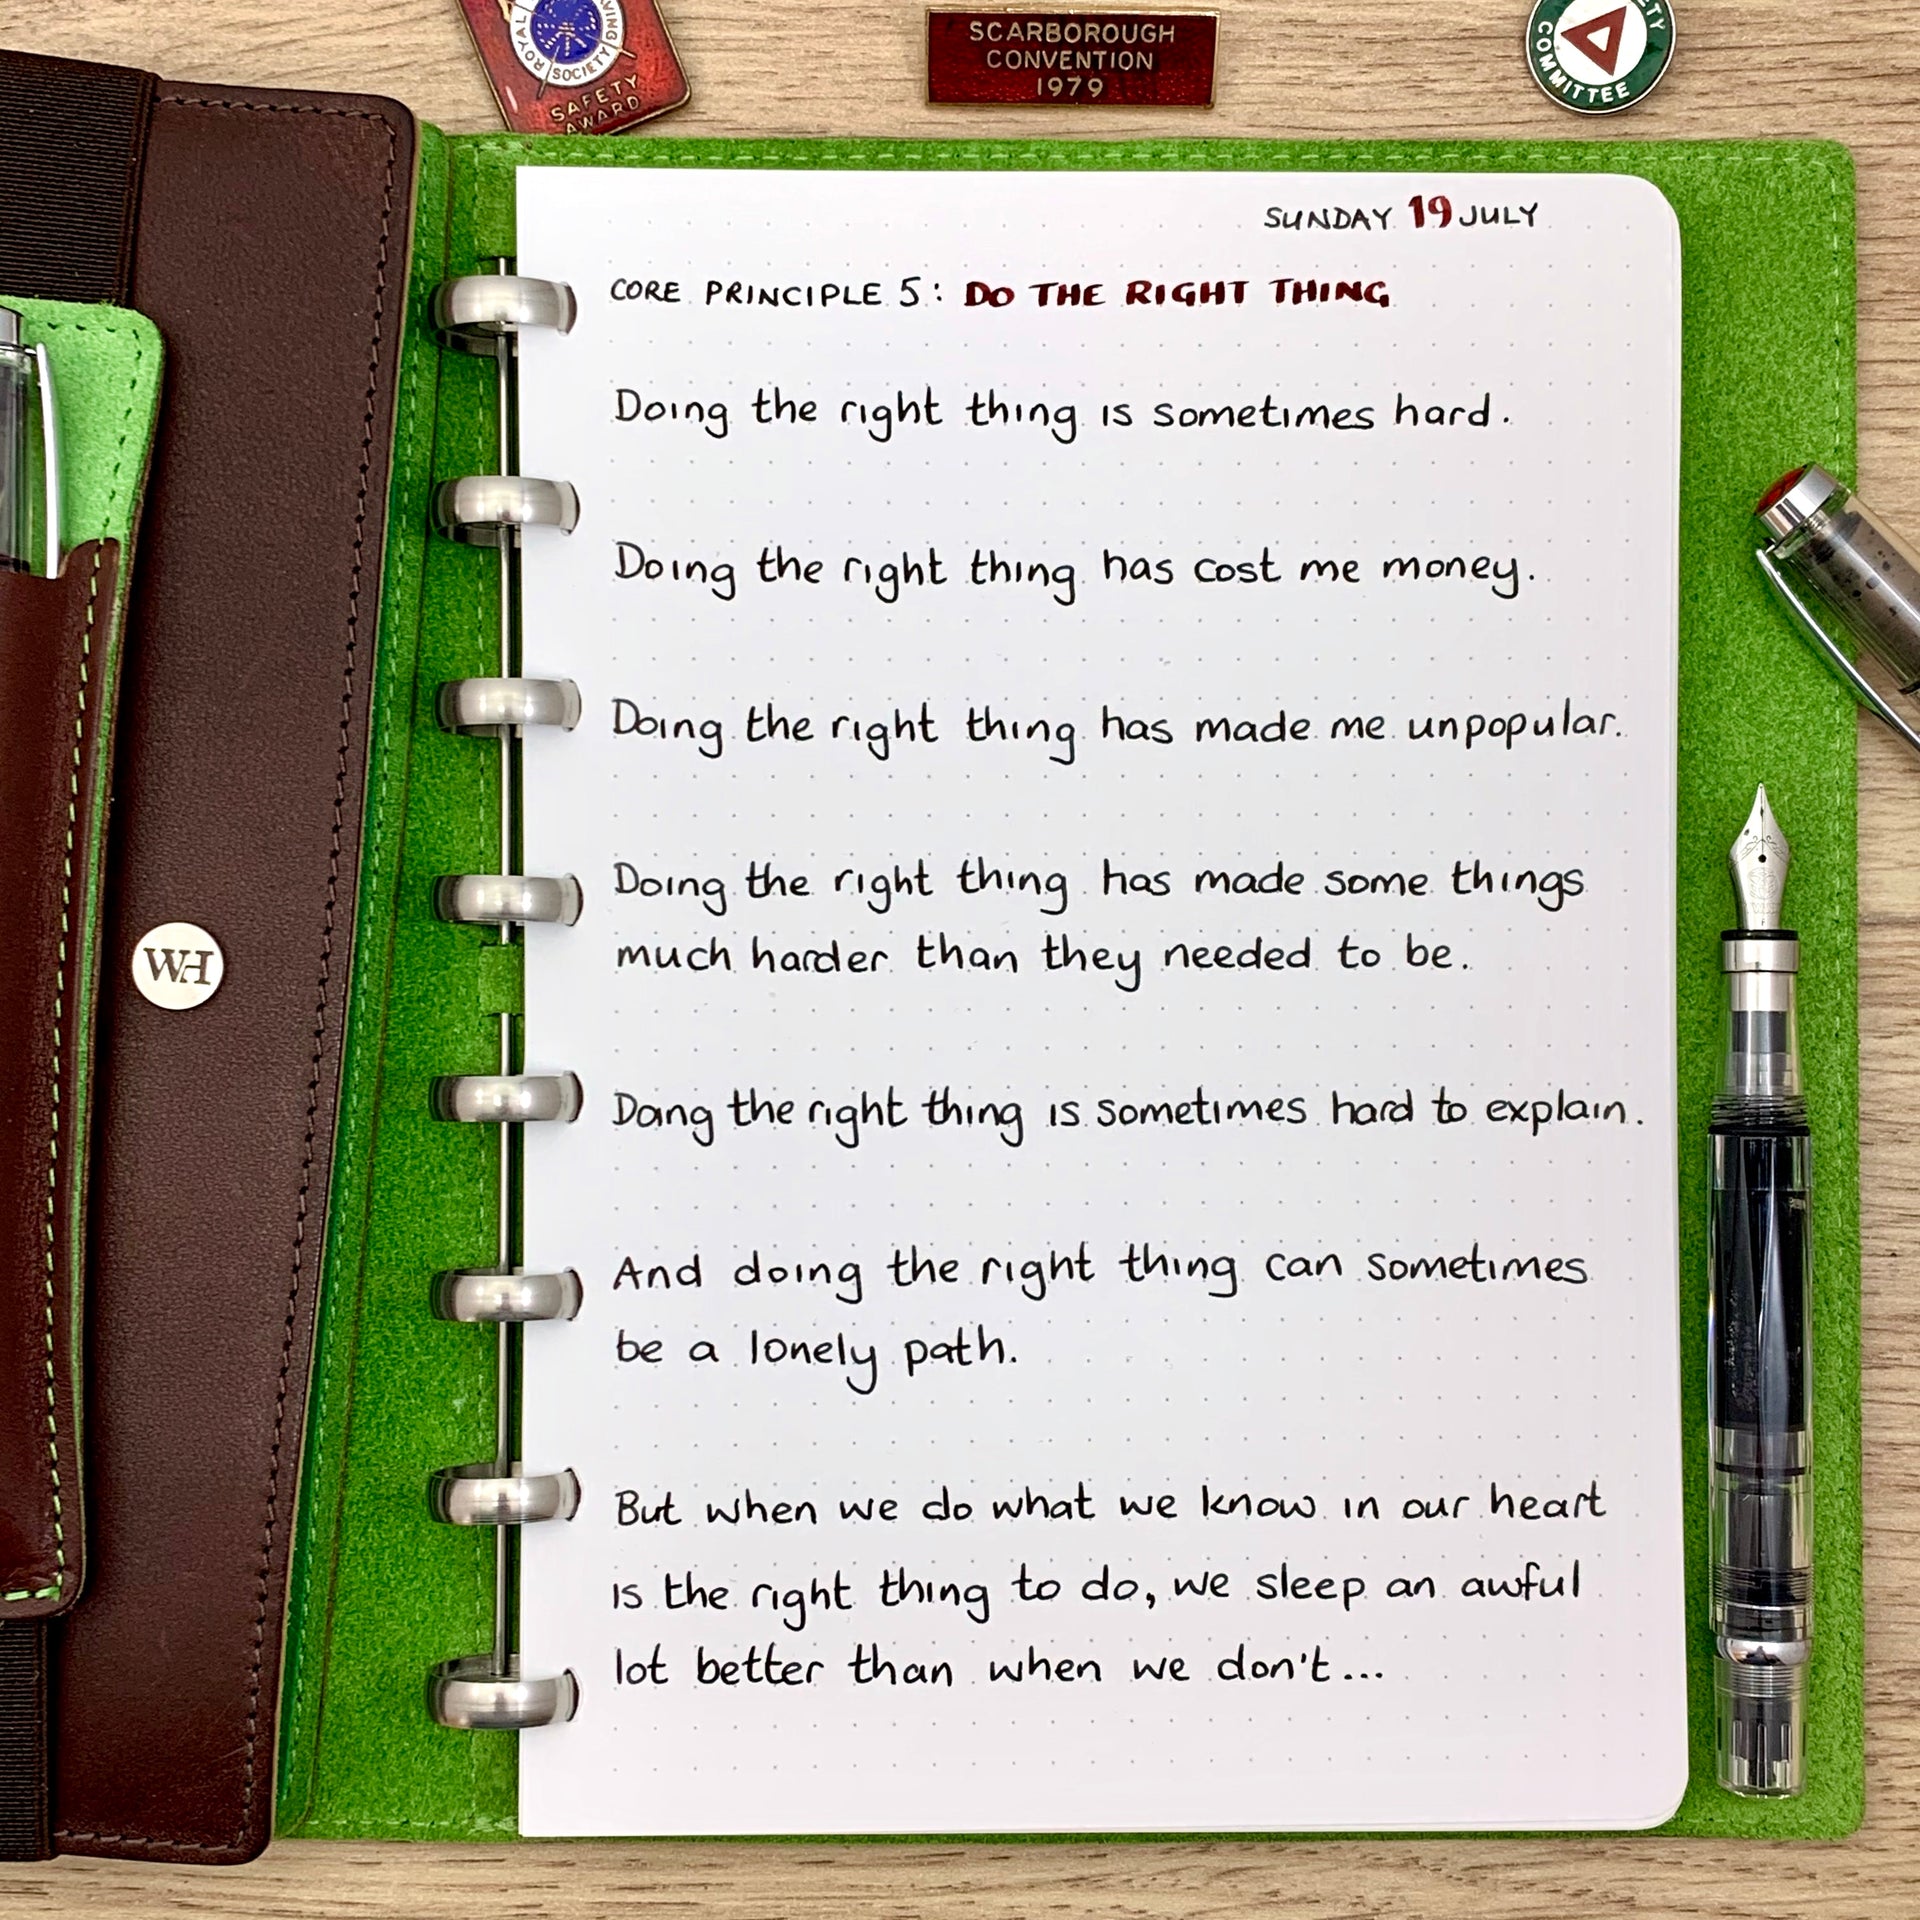 ROYAL
SAVING
SOCIETY
SAFETY
AWARD
SCARBOROUGH
CONVENTION
1979
COMMITTEE
SUNDAY 19 JULY
CORE PRINCIPLE 5: DO THE RIGHT THING
Doing the right thing is sometimes hard.
Doing the right thing has cost me money.
Doing the right thing has made me unpopular.
Doing the right thing has made some things
much harder than they needed to be.
Doing the right thing is sometimes hard to explain.
And doing the right thing can sometimes
be a lonely path.
But when we do what we know in our heart
is the right thing to do, we sleep an awful
lot better than when we don't...
WH